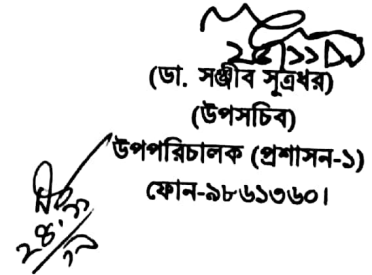 (ডা. সঞ্জীব সূত্রধর)
(উপসচিব)
উপপরিচালক (প্রশাসন-১)
ফোন-৯৮৬১৩৬০।